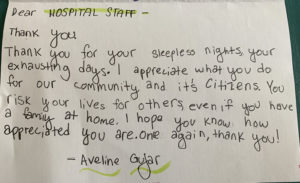 Dear HOSPITAL STAFF -
Thank you
Thank you for your sleepless nights, your
exhausting days. I appreciate what you do
for our community and it's citizens. You
risk your lives for others, even if you have
a family at home. I hope you know how
appreciated you are. One again, thank you!
- Aveline